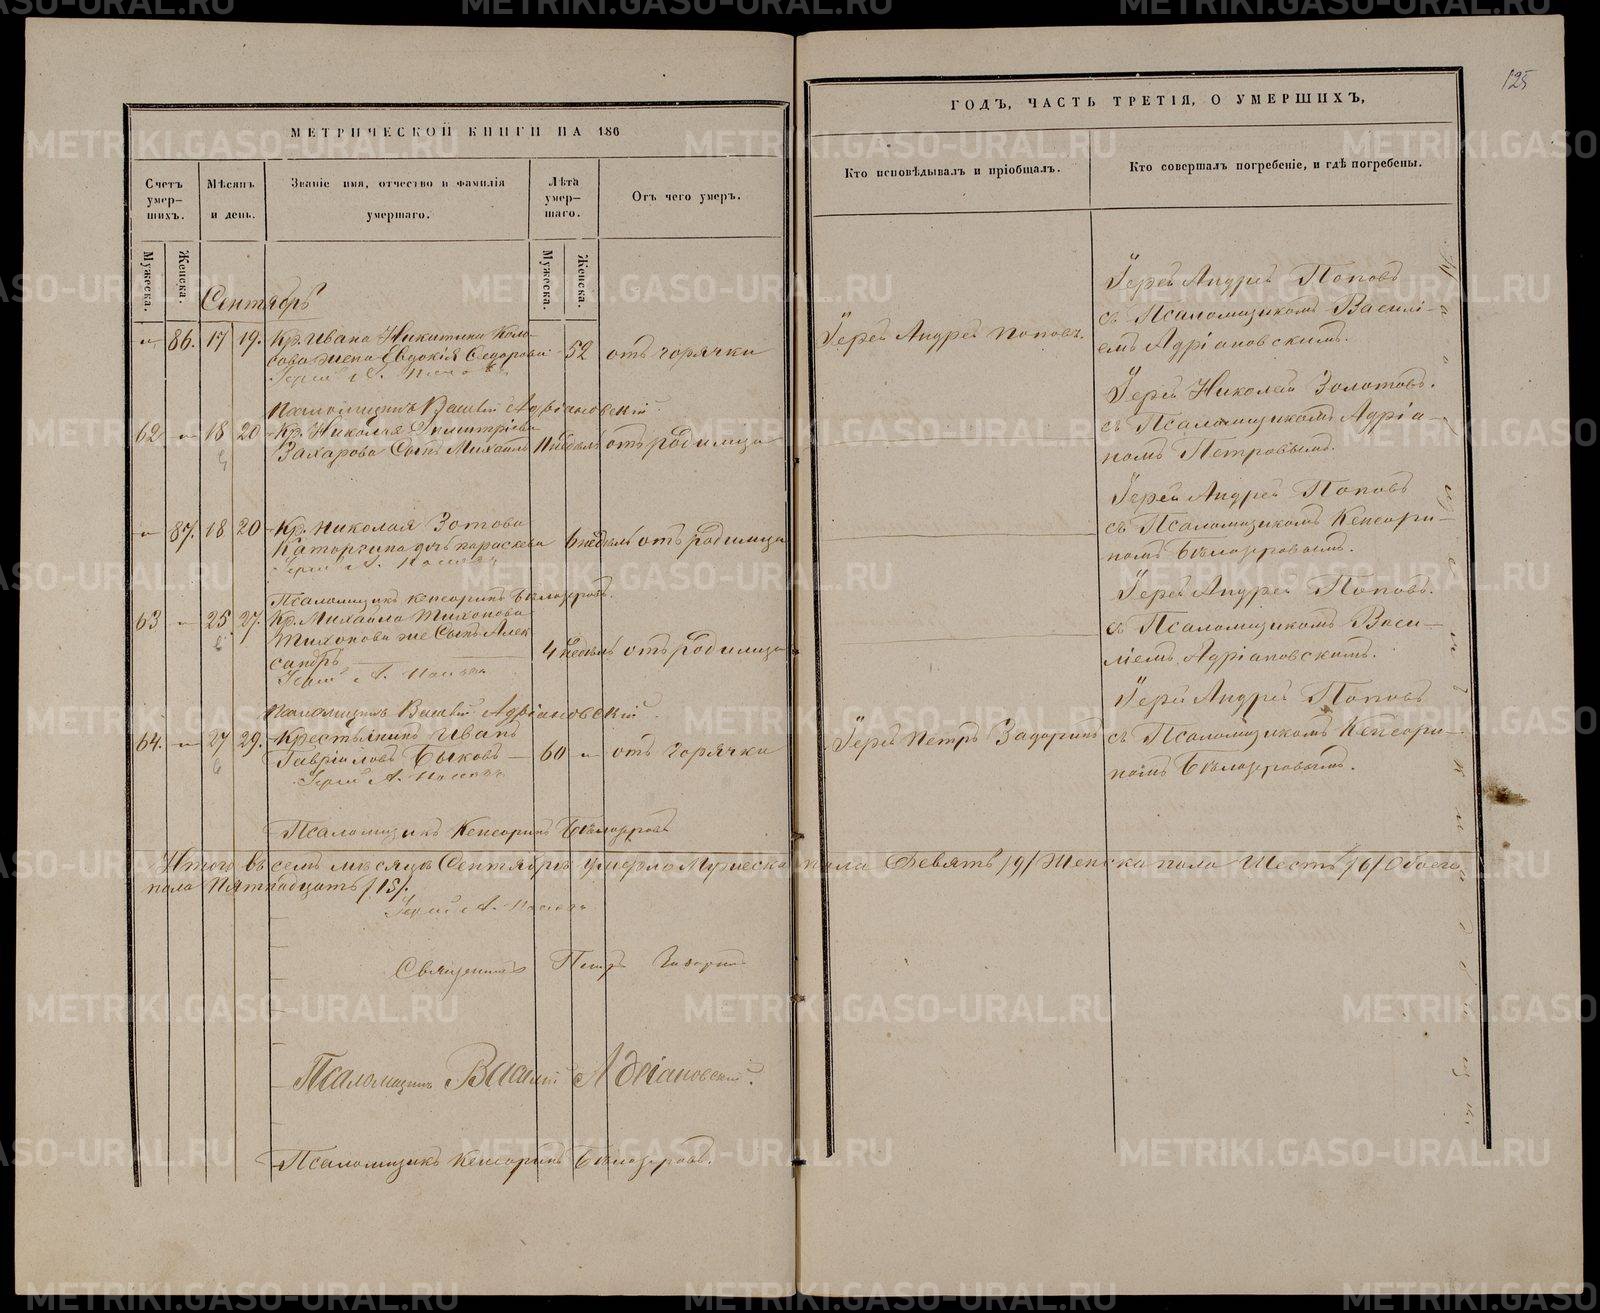 125
МЕТРИЧЕСКОЙ КНИГИ НА 186
ГОДЪ, ЧАСТЬ ТРЕТІЯ, О УМЕРШИХЪ,
Счетъ умер-шихъ.
Мѣсяцъ и день.
Званіе имя, отчество и фамилія умершаго.
Лѣта умер-шаго.
Отъ чего умеръ.
Кто исповѣдывалъ и пріобщалъ.
Кто совершалъ погребеніе, и гдѣ погребены.
Мужеска.
Женска.
Мужеска.
Женска.
Сентябрь
86. 17 19. Кр. Ивана Никитина Коло-
сова жена Евдокія Ѳедорова 52 отъ горячки
Іерей Андрей Поповъ.
Іерей Андрей Поповъ
съ Псаломщикомъ Василі-
емъ Адріановскимъ.
Псаломщикъ Василій Адріановскій.
62 18 20 Кр. Николая Димитріева
Захарова Сынъ Михаилъ недѣль отъ родимца
Іерей Николай Золотовъ.
съ Псаломщикомъ Адріа-
номъ Петровымъ.
87. 18 20 Кр. Николая Зотова
Каторгина дочь параскева 6 недѣль отъ родимца
Іерей Андрей Поповъ
съ Псаломщикомъ Кенсори-
номъ Бѣлозеровымъ.
Псаломщикъ Кенсоринъ Бѣлозеровъ.
63 25 27. Кр. Михаила Тихонова
Тихонова же Сынъ Алек
сандръ 4 недѣль отъ родимца
Іерей Андрей Поповъ.
съ Псаломщикомъ Васи-
ліемъ Адріановскимъ.
Псаломщикъ Василій Адріановскій.
64. 27 29. Крестьянинъ Иванъ
Гавріиловъ Быковъ 60 отъ горячки
Іерей Петръ Задоринъ
Іерей Андрей Поповъ
съ Псаломщикомъ Кенсори-
номъ Бѣлозеровымъ.
Псаломщикъ Кенсоринъ Бѣлозеровъ
Итого въ семъ мѣсяцѣ Сентябрѣ умерло Мужеска пола Девять /9/ Женска пола Шесть /6/ Обоего
пола Пятнадцать /15/.
Священникъ Петръ Задоринъ
Псаломщикъ Василій Адріановскій.
Псаломщикъ Кенсоринъ Бѣлозеровъ.
METRIKI.GASO-URAL.RU